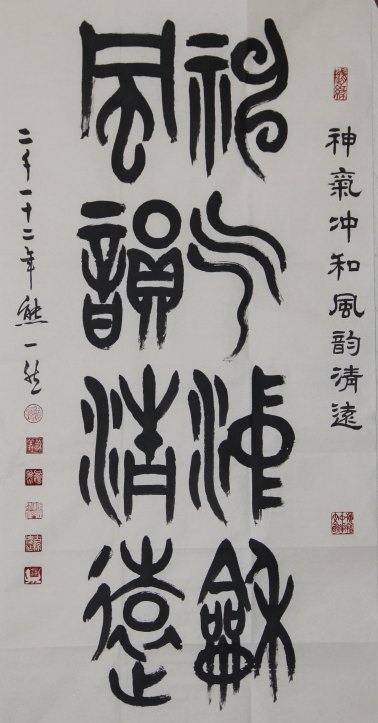 神氣冲和風韵清遠
神气沖龢
風韻清遠
二千一十二年熊一然